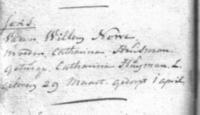 Vader Willem Nowe
Moeder Catharina Huisman
Getuige Catharina Huisman
geboren 29 Maart gedoopt 1 april